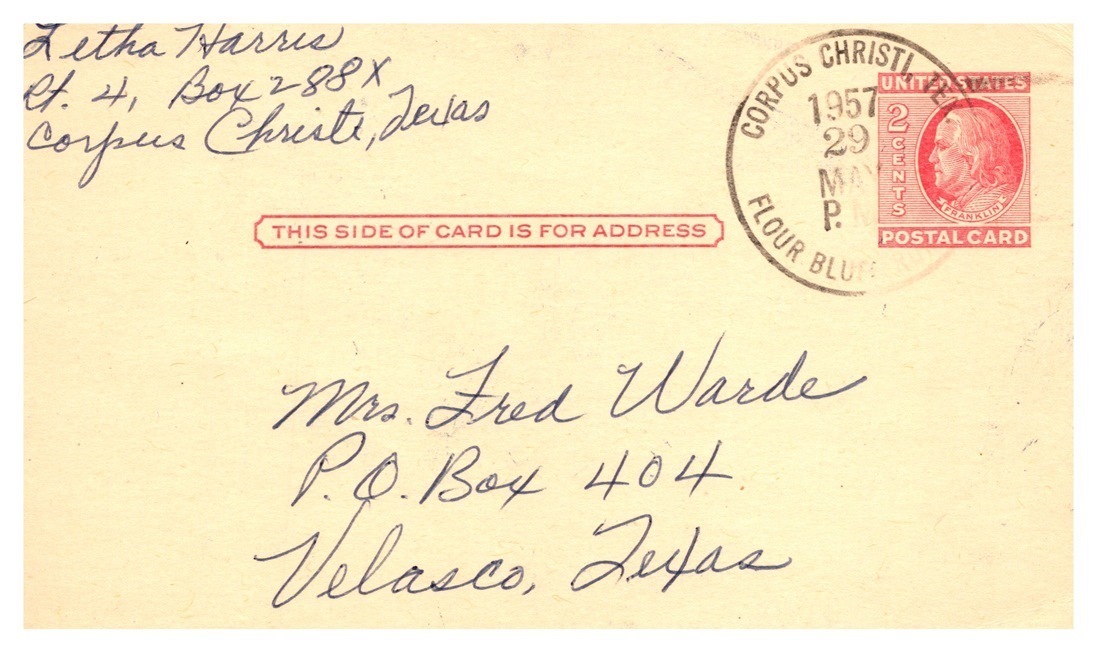 Letha Harris
Rt. 4, Box 288X
Corpus Christi, Texas
CORPUS CHRISTI, TEX.
1957
29
MAY
P.M
FLOUR BLUFF
UNITED STATES
2 CENTS
FRANKLIN
POSTAL CARD
THIS SIDE OF CARD IS FOR ADDRESS
Mrs. Fred Warde
P.O. Box 404
Velasco, Texas